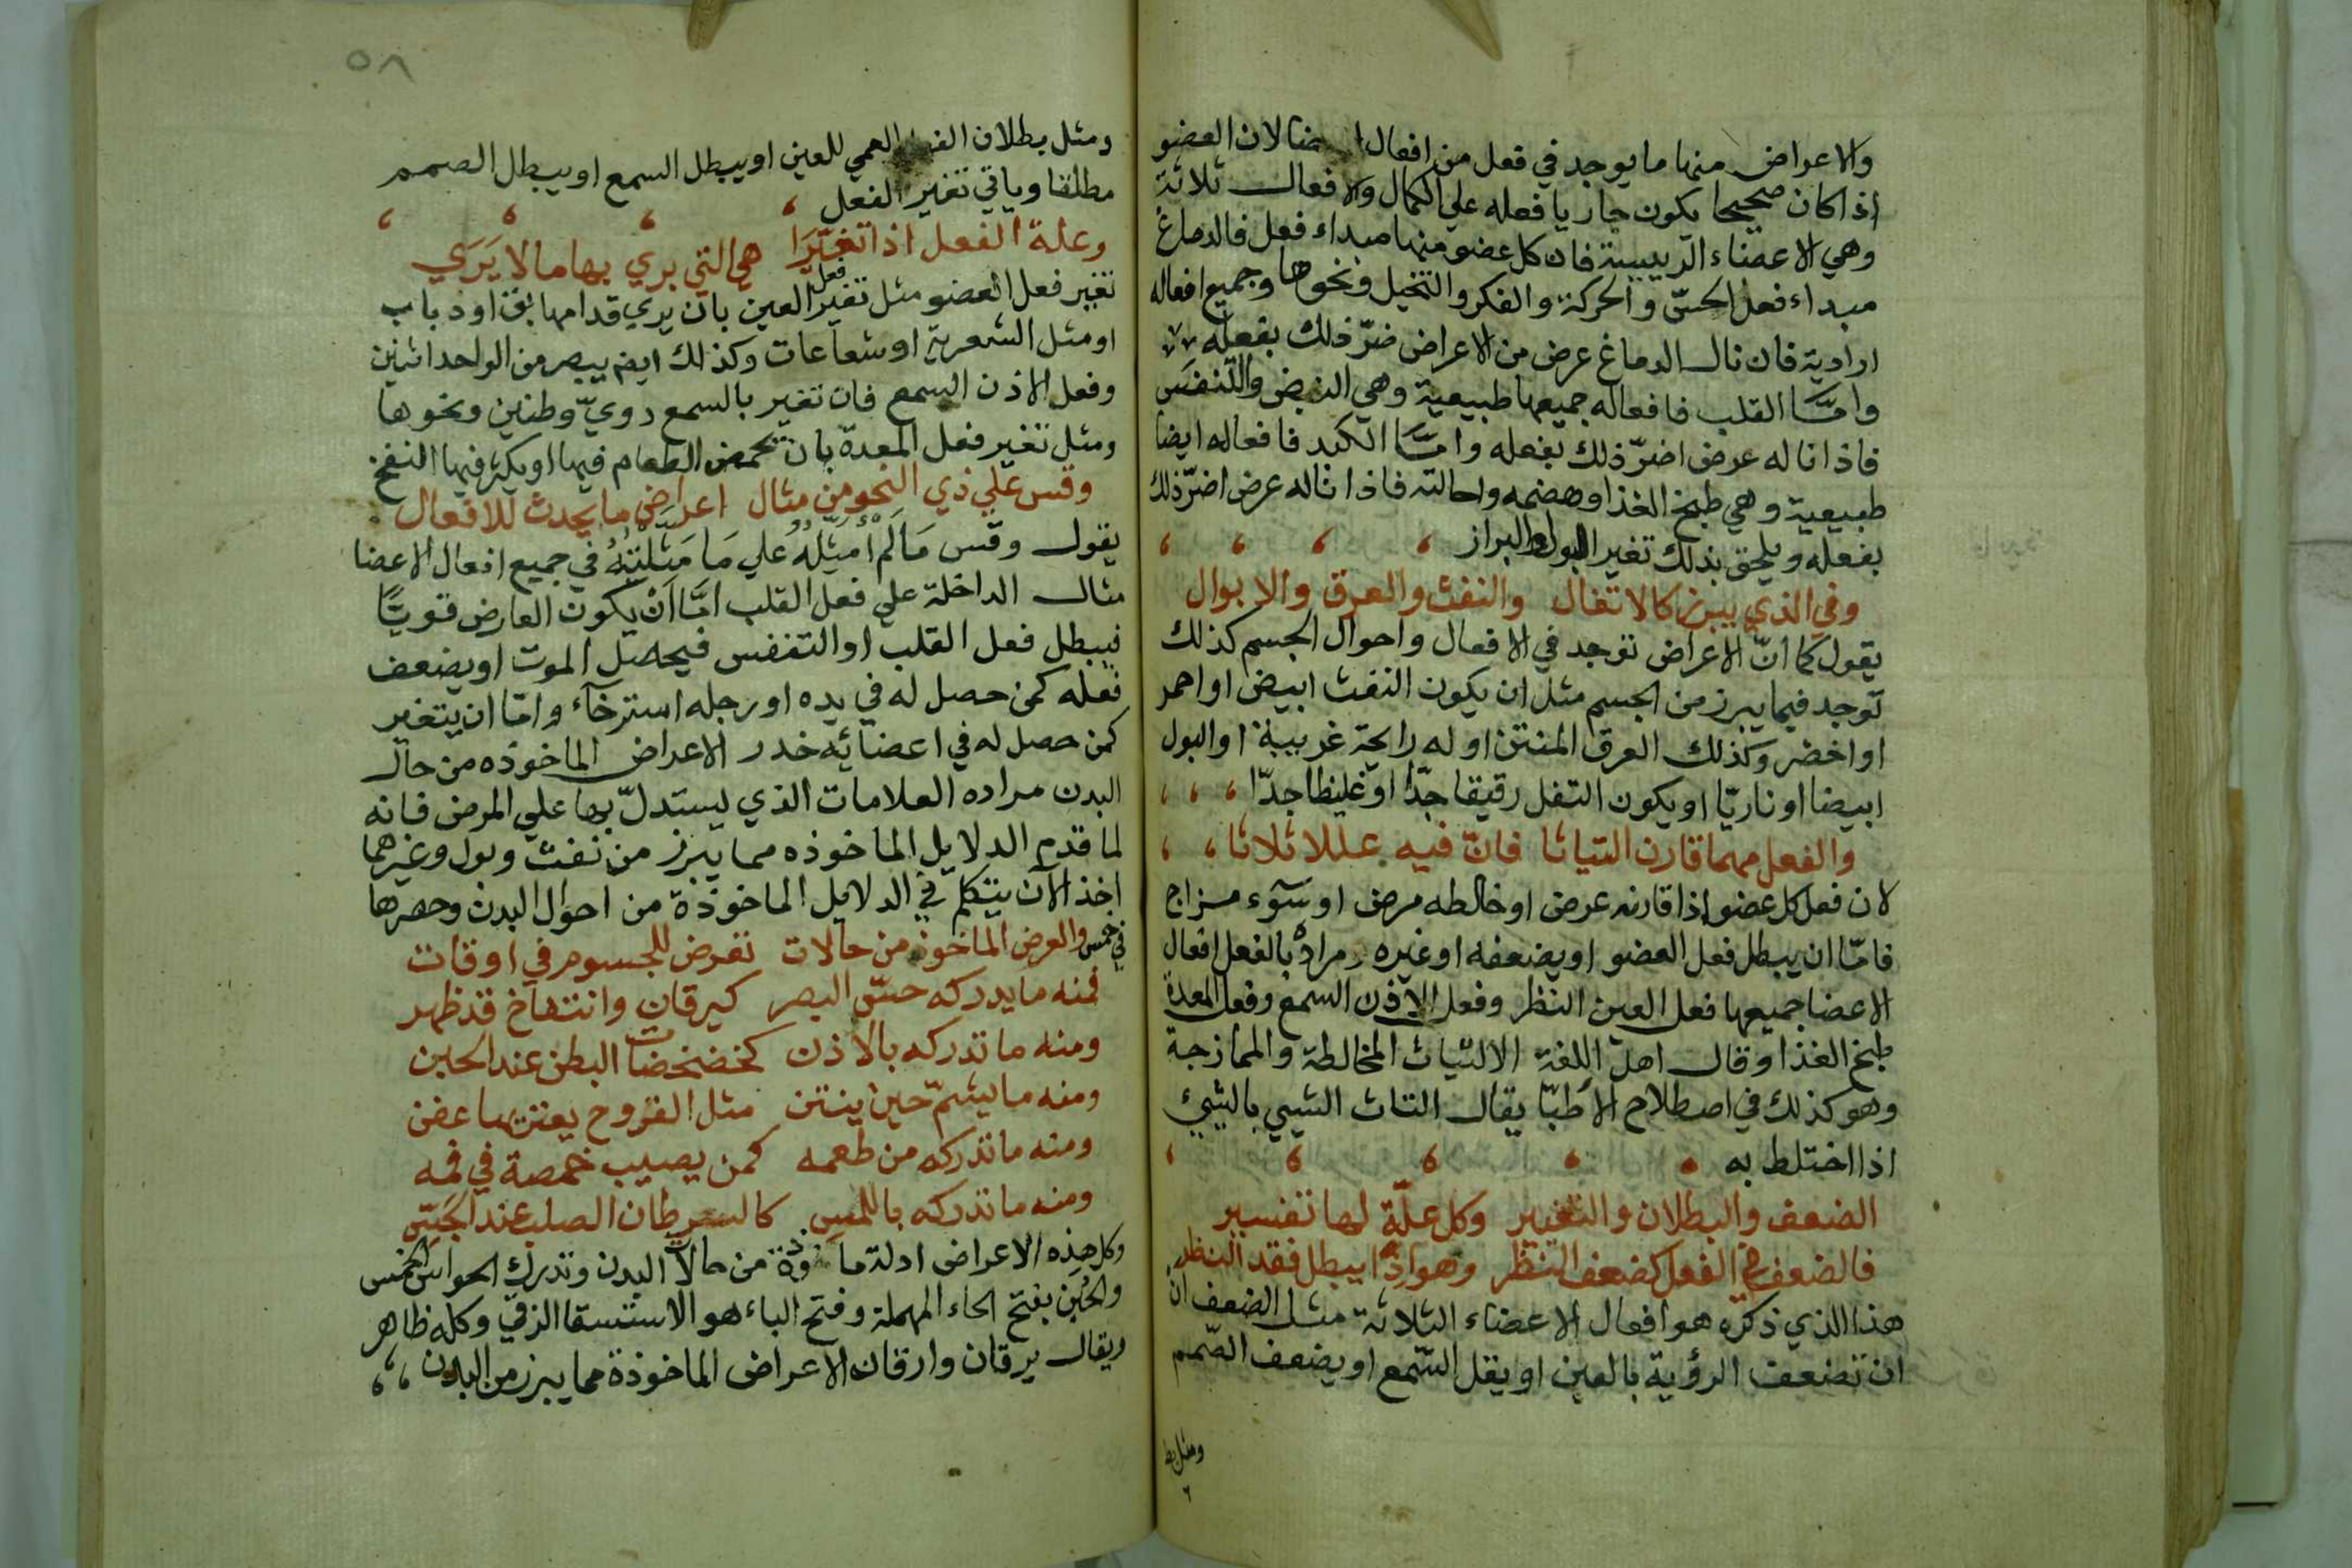 والاعراض منها ما يوجد في فعل من افعال الاعضا لان العضو
اذا كان صحيحا يكون جاريا فعله علي الكمال والافعال ثلاثة
وهي الاعضاء الرييسة فان كل عضو منها مبداء فعل فالدماغ
مبداء فعل الحسّ والحركة والفكر والتخيل ونحوها وجميع افعاله
ارادية فان نال الدماغ عرض من الاعراض ضرّ ذلك بفعله
وامّا القلب فافعاله جميعها طبيعية وهي النبض والتنفس
فاذا ناله عرض اضرّ ذلك بفعله وامّا الكبد فافعاله ايضا
طبيعية وهي طبخ الغذا وهضمه واحالته فاذا ناله عرض اضرّ ذلك
بفعله ويلحق بذلك تغير البول والبراز
وفي الذي يبرز كالاتفال والنفث والعرق والابوال
يقول كما انّ الاعراض توجد في الافعال واحوال الجسم كذلك
توجد فيما يبرز من الجسم مثل ان يكون النفث ابيض او احمر
او اخضر وكذلك العرق المنتن او له رايحة غريبة او البول
ابيضا او ناريّا او يكون التفل رقيقا جدّا او غليظا جدّا
والفعل مهما قارن التياثا فانّ فيه عللا ثلاثا
لان فعل كل عضو اذا قارنه عرض او خالطه مرض او سوء مزاج
فامّا ان يبطل فعل العضو او يضعفه او غيره مراده بالفعل افعال
الاعضا جميعها فعل العين النظر وفعل الاذن السمع وفعل المعدة
طبخ الغذا وقال اهل اللغة الالتياث المخالطة والممازجة
وهو كذلك في اصطلاح الاطبّا يقال التاث الشيي بالشيئ
اذا اختلط به
الضعف والبطلان والتغيير وكل علّة لها تفسير
فالضعف في الفعل كضعف النظر وهو اذا يبطل فقد النظر
هذا الذي ذكره هو افعال الاعضاء الثلاثة مثل الضعف ان
ان تضعف الرؤية بالعين او يقل السّمع او يضعف الصّمم
ومثل بط
٥٨
ومثل بطلان العمي للعين او يبطل السمع او يبطل الصمم
مطلقا وياتي تغير الفعل
وعلة الفعل اذا تغيّرا هي التي يري بها ما لا يَرَي
تغير فعل العضو مثل تغير فعل العين بان يري قدامها بق او ذباب
او مثل الشعرية او شعاعات وكذلك ايضا يبصر من الواحد اثنين
وفعل الاذن السمع فان تغير بالسمع دويّ وطنين ونحوها
ومثل تغير فعل المعدة بان تحمض الطعام فيها او يكثر فيها النفخ
وقس علي ذي النحو من مثال اعراض ما يحدث للافعال
يقول وقس مَا لَم اُمَثِّلهُ علي مَا مَثَّلْتُهُ في جميع افعال الاعضا
مثال الداخلة علي فعل القلب امّا اَنْ يكون العارض قويّا
فيبطل فعل القلب او التنفس فيحصل الموت او يضعف
فعله كمن حصل له في يده او رجله استرخآء وامّا ان يتغير
كمن حصل له في اعضايه خدر الاعراض الماخوذه من حال
البدن مراده العلامات الذي يستدلّ بها علي المرض فانه
لما قدم الدلايل الماخوذه مما يبرز من نفث وبول وغيرهما
اخذ الآن يتكلم في الدلايل الماخوذة من احوال البدن وحصرها
في خمس والعرض الماخوذ من حالات تعرض للجسوم في اوقات
فمنه ما يدركه حسّ البصر كيرقان وانتفاخ قد ظهر
ومنه ما تدركه بالاذن كخضخضات البطن عند الحبن
ومنه ما يشمّ حين ينتن مثل القروح يعتريها عفن
ومنه ما تدركه من طعمه كمن يصيب حمصة في فمه
ومنه ما تدركه باللمس كالسرطان الصلب عند الجَسّ
وكل هذه الاعراض ادلة ماخوذة من حالات البدن وتدرك الحواس الخمس
والحبن بفتح الحاء المهملة وفتح الباء هو الاستسقا الزقي وكله ظاهر
ويقال يرقان وارقان الاعراض الماخوذة مما يبرز من البدن